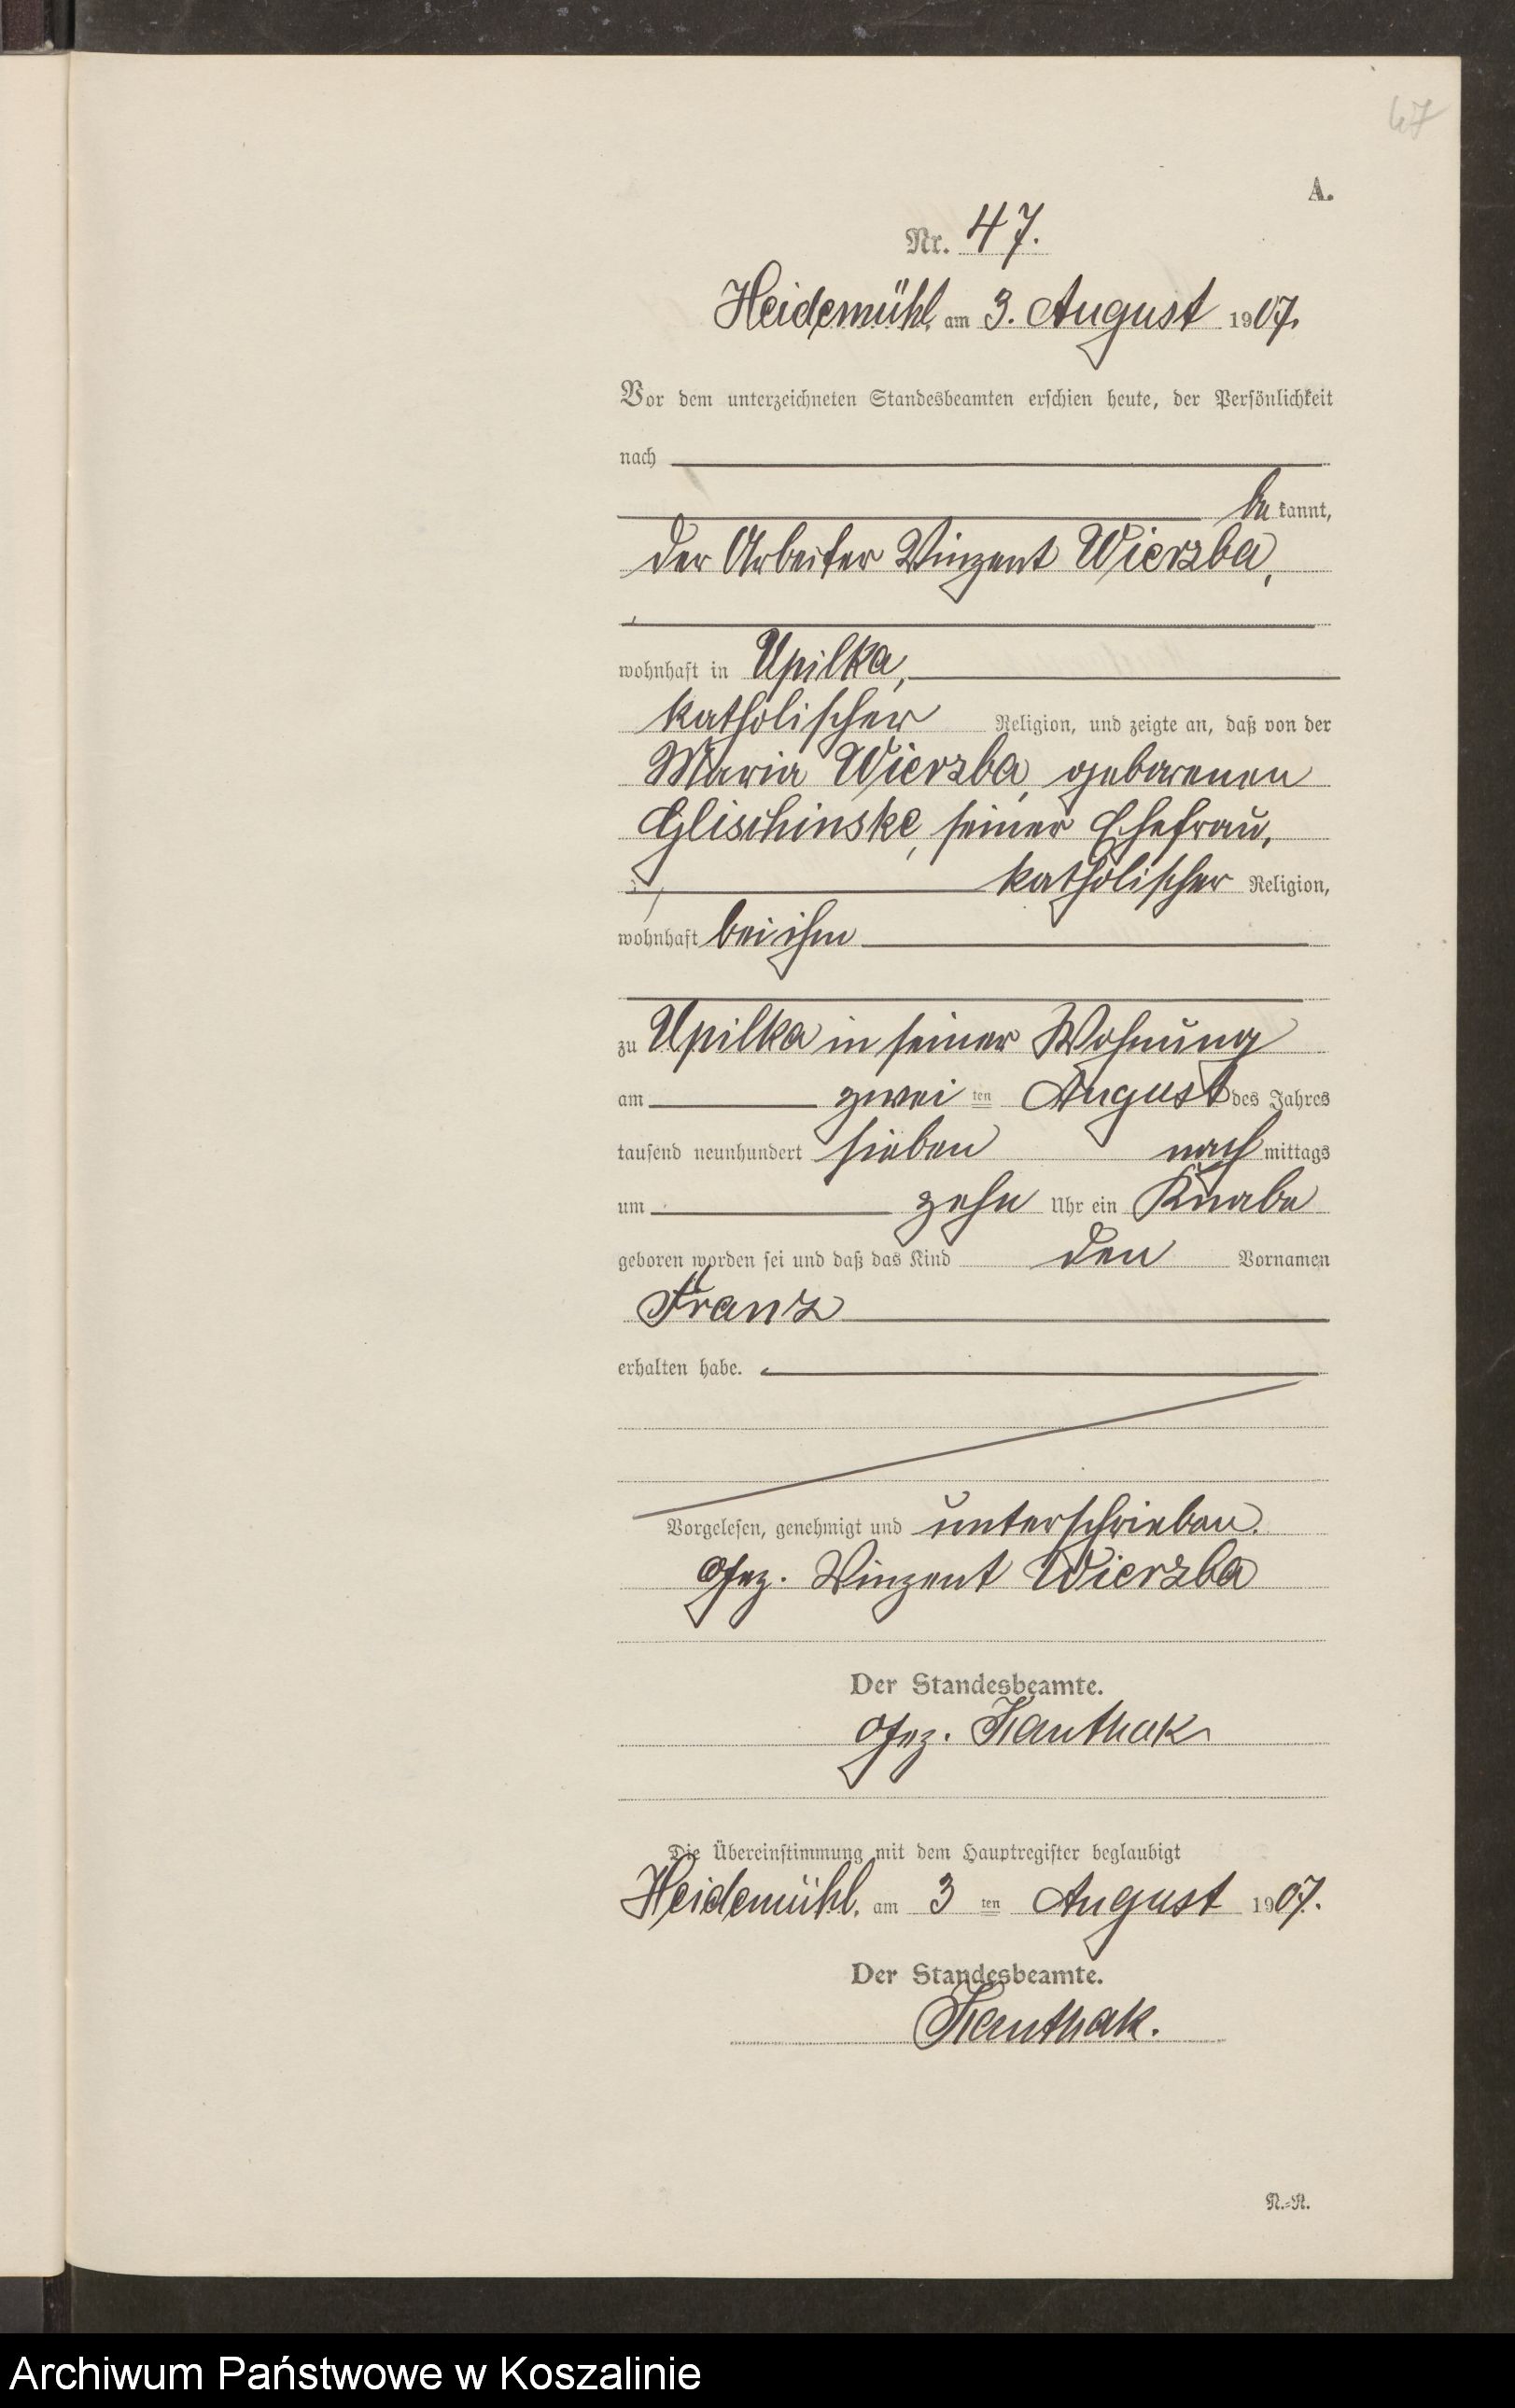 47
A.
Nr. 47.
Heidemühl, am 3. August 1907.
Vor dem unterzeichneten Standesbeamten erschien heute, der Persönlichkeit
nach
be kannt,
der Arbeiter Vinzent Wierzba,
wohnhaft in Upilka,
katholischer Religion, und zeigte an, daß von der
Maria Wierzba, geborenen
Glischinske, seiner Ehefrau,
katholischer Religion,
wohnhaft bei ihm
zu Upilka in seiner Wohnung
am zwei ten August des Jahres
tausend neunhundert sieben nach mittags
um zehn Uhr ein Knabe
geboren worden sei und daß das Kind den Vornamen
Franz
erhalten habe.
Vorgelesen, genehmigt und unterschrieben.
Gez. Vinzent Wierzba
Der Standesbeamte.
Gez. Kauthak
Die Übereinstimmung mit dem Hauptregister beglaubigt
Heidemühl, am 3 ten August 1907.
Der Standesbeamte.
Kauthak.
N.=R.
Archiwum Państwowe w Koszalinie